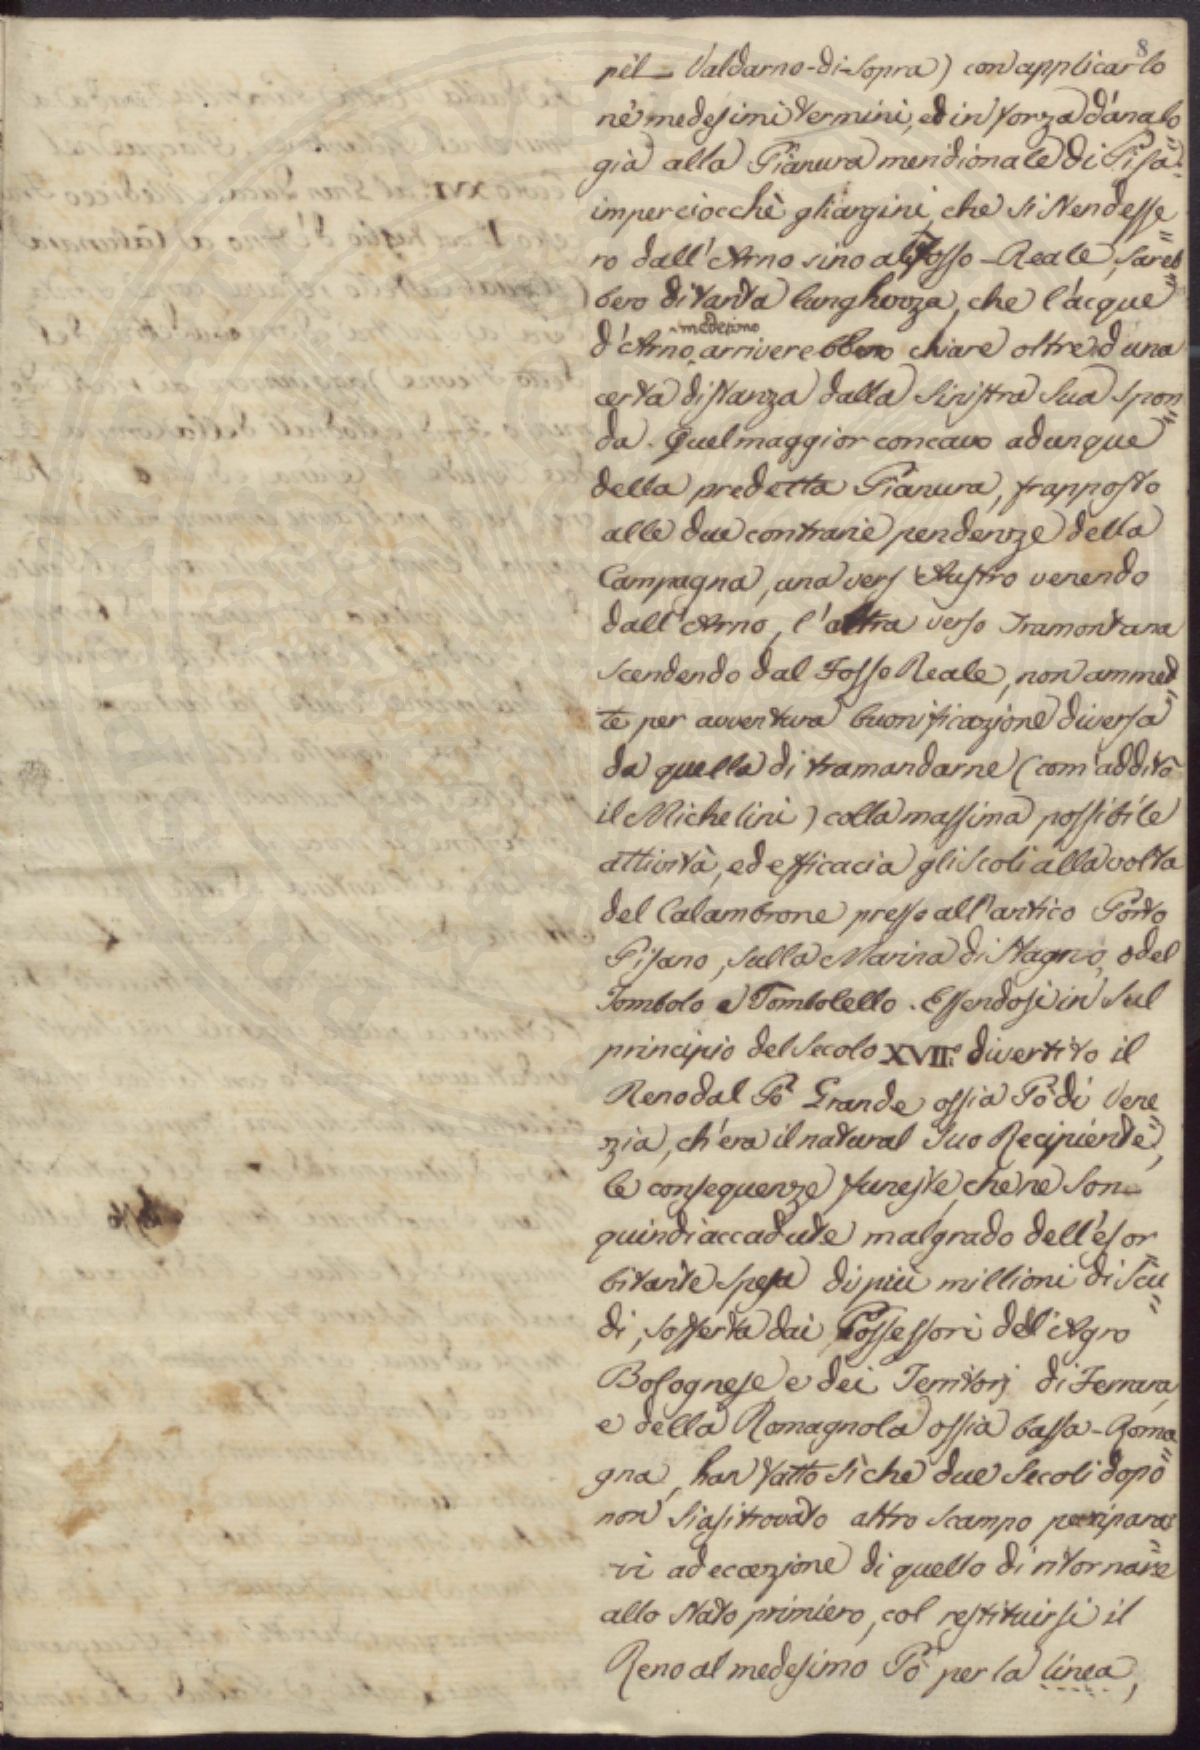 8
pel Valdarno-di-sopra) con applicarlo
né medesimi termini, ed in forza d'analo=
gia alla Pianura meridionale di Pisa:
imperciocchè gli argini, che si stendesse=
ro dall'Arno sino al Fosso-Reale, sareb=
bero di tanta lunghezza, che l'acque
d'Arno medesimo arriverebbero chiare oltre d'una
certa distanza dalla sinistra sua spon=
da. Quel maggior concavo adunque
della predetta Pianura, frapposto
alle due contrarie pendenze della
Campagna, una vers'Austro venendo
dall'Arno, l'altra verso Tramontana
scendendo dal Fosso Reale, non ammet=
te per avventura buonificazione diversa
da quella di tramandarne (com'additò
il Michelini) colla massima possibile
attività, ed efficacia gli scoli alla volta
del Calambrone presso all'antico Porto
Pisano, sulla Marina di Stagno, o del
Tombolo e Tombolello. Essendosi in sul
principio del Secolo XVII.° divertito il
Reno dal Pò Grande ossia Pò di Vene=
zia, ch'era il natural suo Recipiente,
le conseguenze funeste, che ne son
quindi accadute malgrado dell'esor=
bitante spesa di più millioni di Scu=
di, sofferta dai Possessori dell'Agro
Bolognese e dei Territorj di Ferrara,
e della Romagnola ossia bassa-Roma=
gna, han fatto sì che due Secoli dopo
non siasi trovato altro scampo per ripara=
vi ad eccezione di quello di ritornare
allo stato primiero, col restituirsi il
Reno al medesimo Pò per la linea,